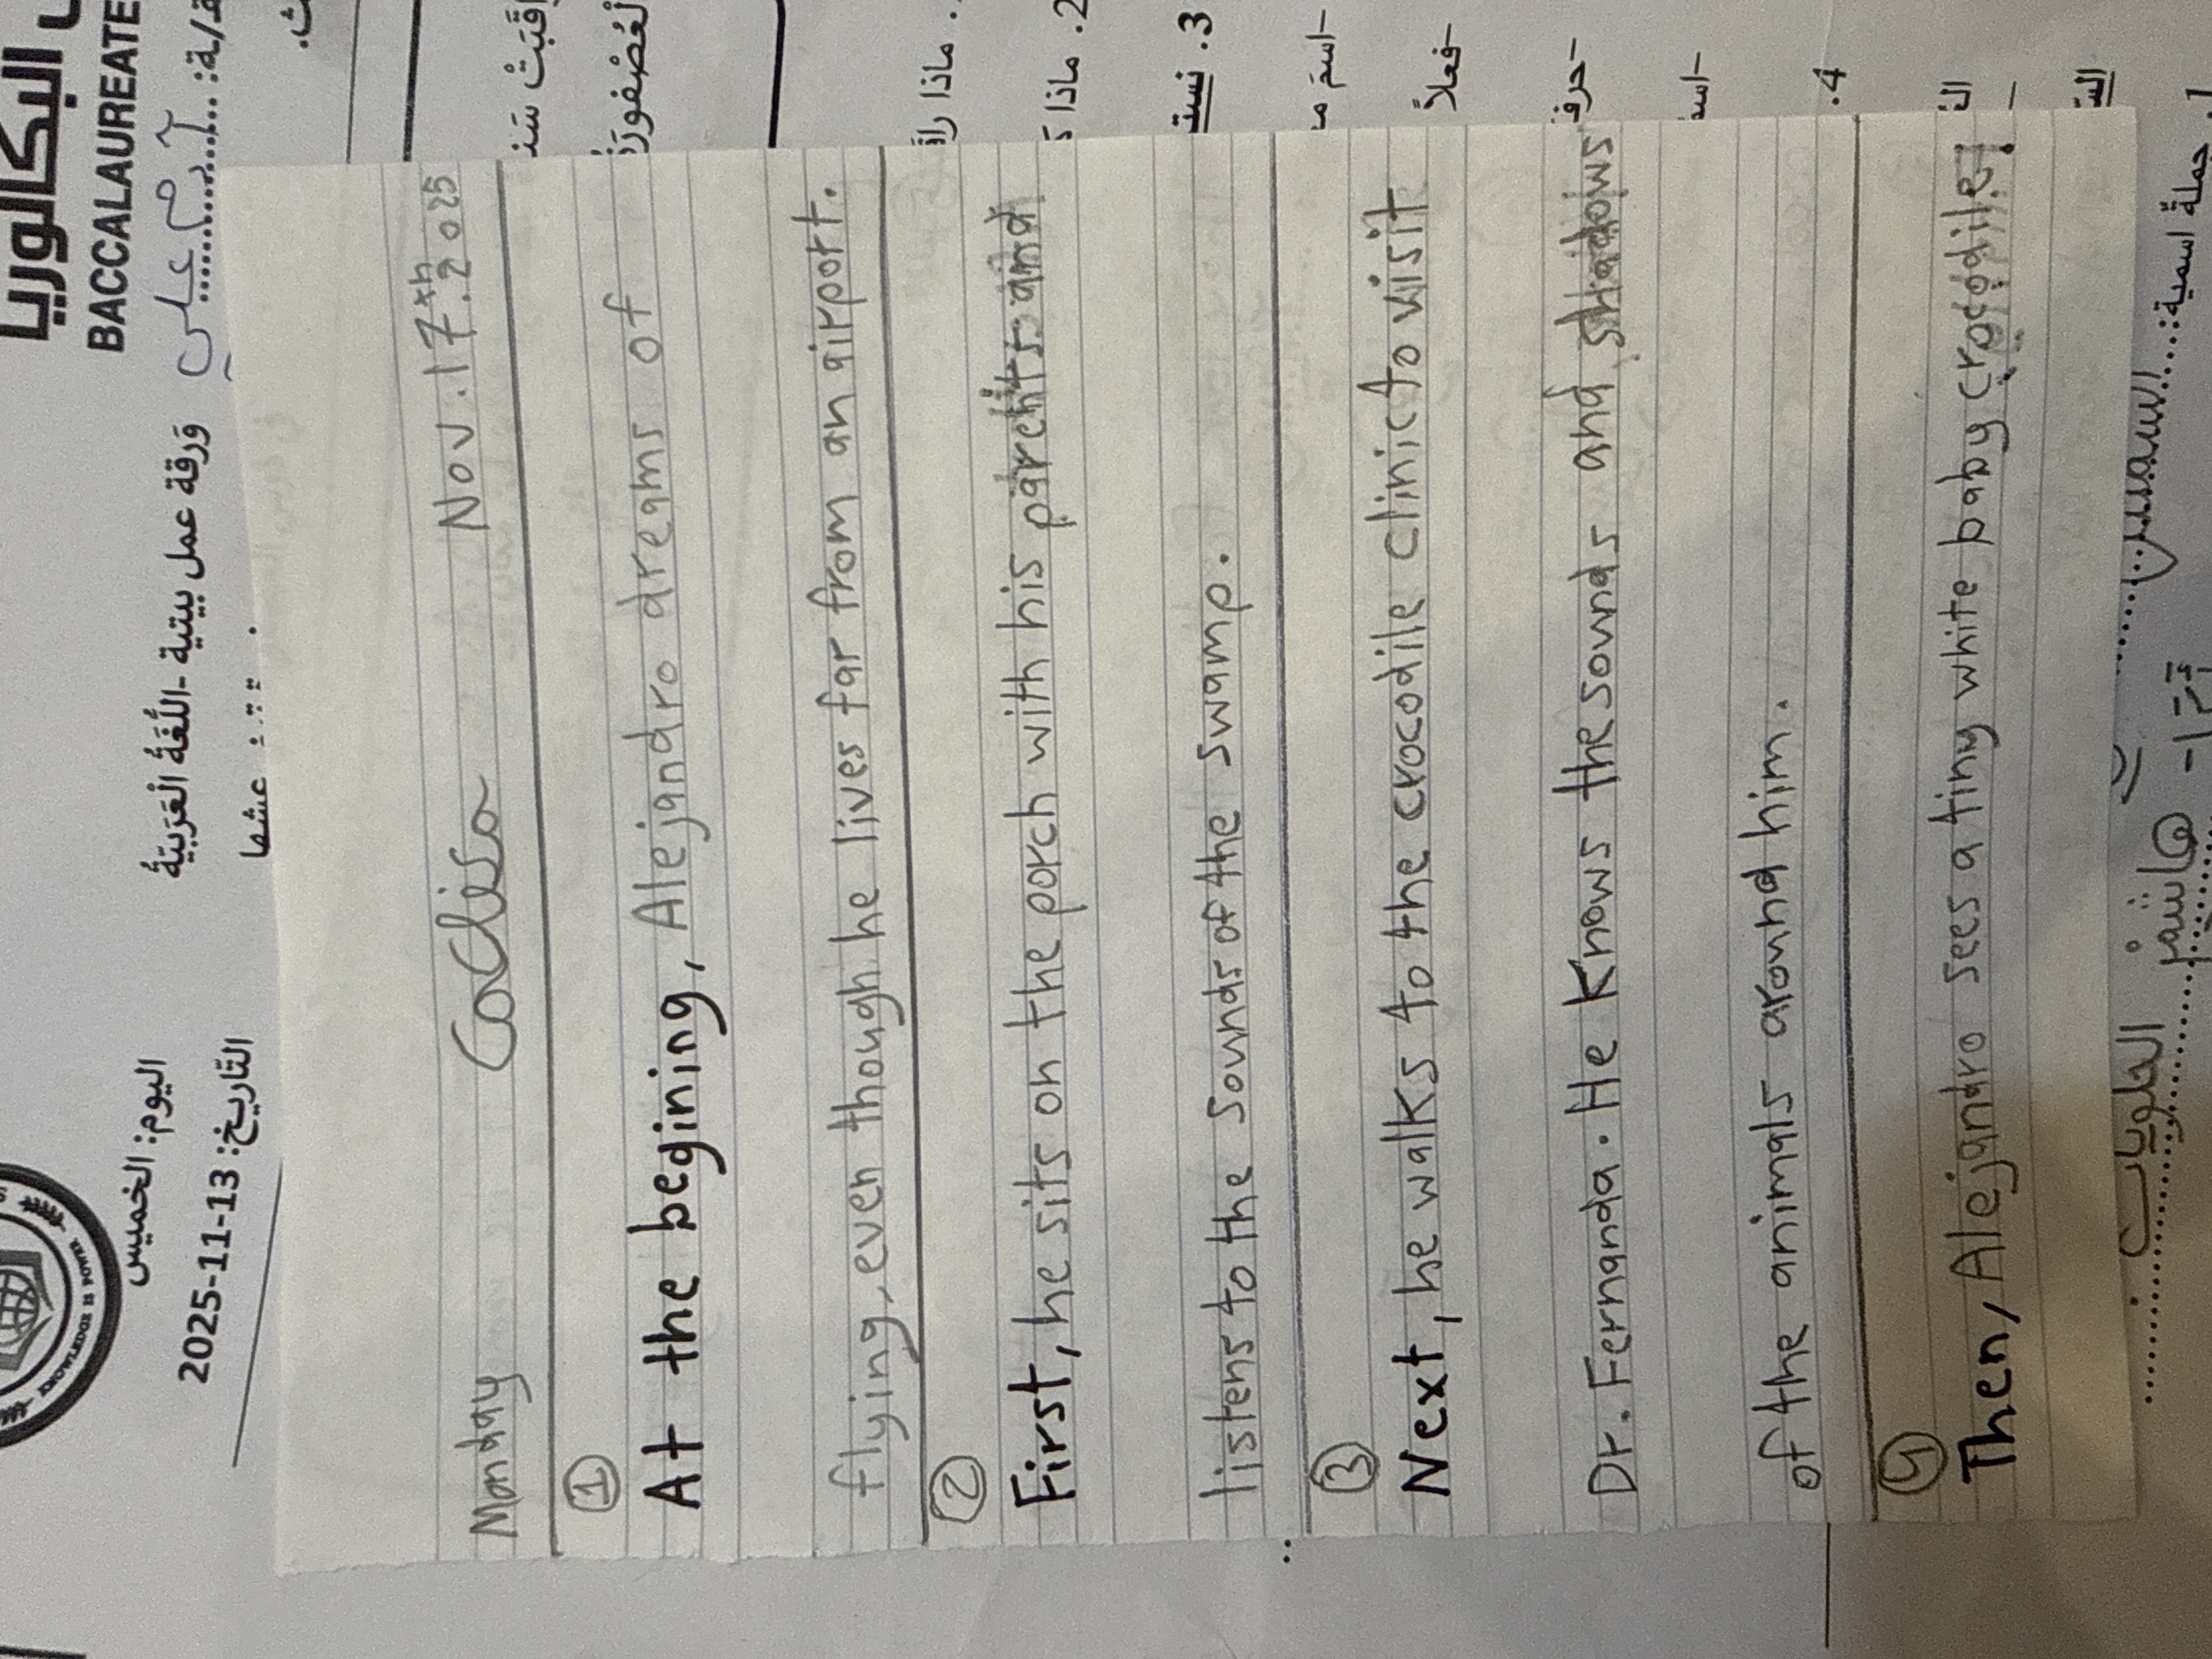 البكالوريا
BACCALAUREATE
اليوم: الخميس
التّاريخ: 13-11-2025
وَرقة عمل بيتية -اللُّغَةُ الْعَرَبِيّةُ
KNOWLEDGE IS POWER
Monday Nov. 17th. 2025
① At the begining, Alejandro dreams of
flying, even though he lives far from an airport.
② First, he sits on the porch with his parents and
listens to the sounds of the swamp.
③ Next, he walks to the crocodile clinic to visit
Dr. Fernanda. He Knows the sounds and shadows
of the animals around him.
④ Then, Alejandro sees a tiny white baby crocodile!
1. ماذا
2. ماذا
3.
-اسم
-فعلاً
4.
جملة اسمية: